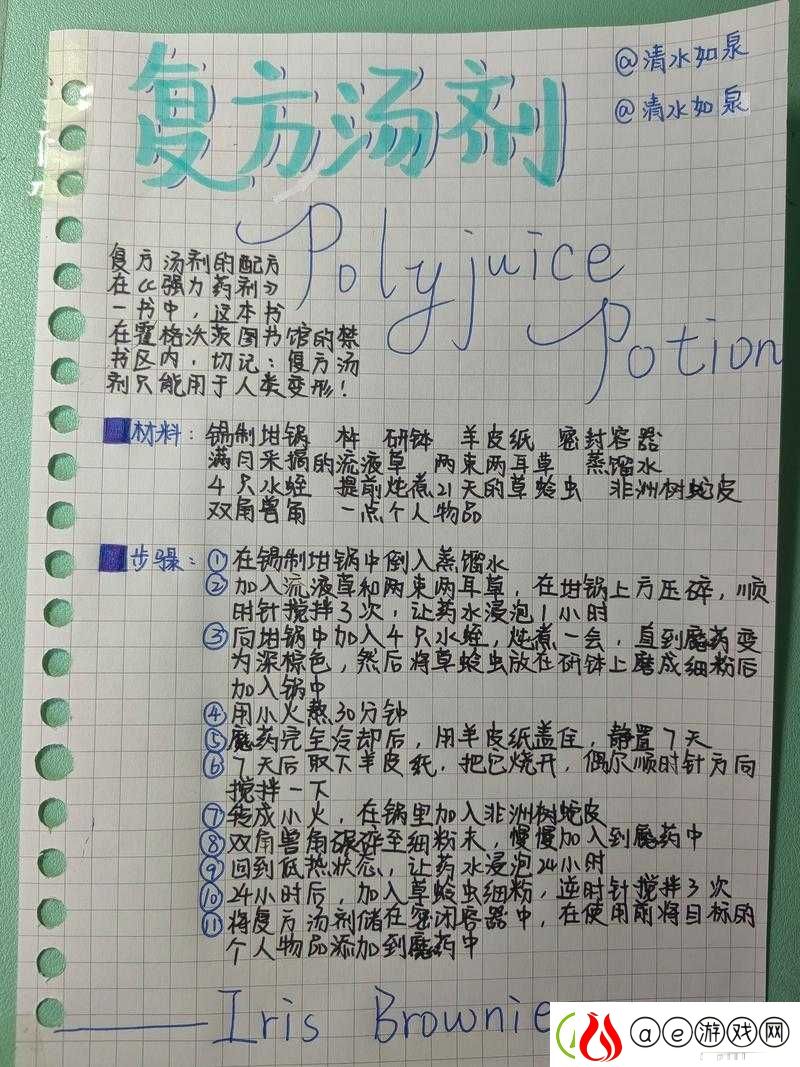 @清水如泉
@清水如泉
复方汤剂
Polyjuice
Potion
复方汤剂的配方
在《强力药剂》
一书中，这本书
在霍格沃茨图书馆的禁
书区内，切记：复方汤
剂只能用于人类变形！
材料：锡制坩锅 杵 研钵 羊皮纸 密封容器
满月采摘的流液草 两束两耳草 蒸馏水
4只水蛭 提前炖煮21天的草蛉虫 非洲树蛇皮
双角兽角 一点个人物品
步骤：①在锡制坩锅中倒入蒸馏水
②加入流液草和两束两耳草，在坩锅上方压碎，顺
时针搅拌3次，让药水浸泡1小时
③向坩锅中加入4只水蛭，炖煮一会，直到魔药变
为深棕色，然后将草蛉虫放在研钵上磨成细粉后
加入锅中
④用小火熬30分钟
⑤魔药完全冷却后，用羊皮纸盖住，静置7天
⑥7天后取下羊皮纸，把它烧开，偶尔顺时针方向
搅拌一下
⑦转成小火，在锅里加入非洲树蛇皮
⑧双角兽角碾碎至细粉末，慢慢加入到魔药中
⑨回到低热状态，让药水浸泡24小时
⑩24小时后，加入草蛉虫细粉，逆时针搅拌3次
⑪将复方汤剂储在密闭容器中，在使用前将目标的
个人物品添加到魔药中
——Iris Brownie
@e游戏网